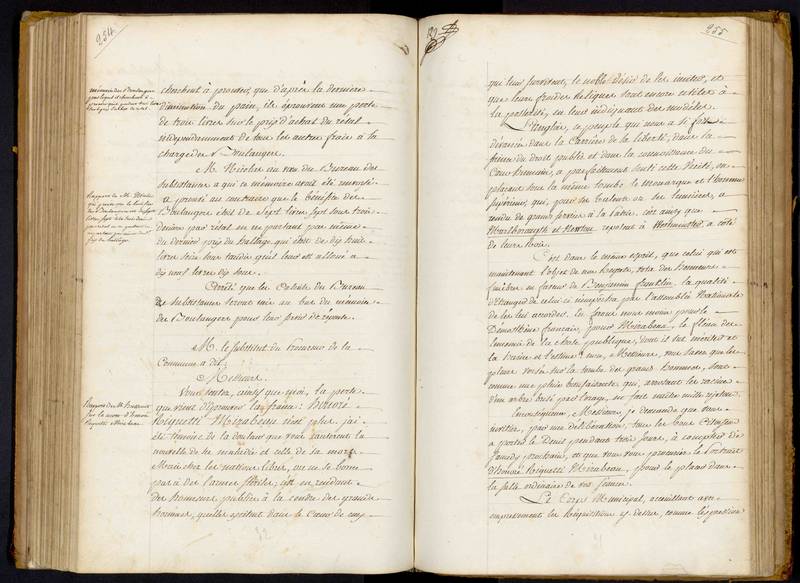 254
mémoire des Boulangers
cherchent à prouver, que d'après la dernière
diminution du pain, ils éprouvent une perte
de trois livres sur le prix d'achat du
indépendamment de tous les autres frais à la
charge des Boulangers.
M. Nicolas au nom du Bureau des
subsistances a qui ce mémoire avait été renvoyé
a prouvé au contraire que le bénéfice des
Boulangers était de Sept livres sept sous trois
deniers par en ne partant pas même
du dernier prix du hallage qui était de dix huit
livres six sous tandis qu'il leur est alloué a
dix neuf livres dix sous.
Arrêté que les Calculs du Bureau
de subsistance seront mis au bas du mémoire
des Boulangers pour leur servir de réponse.
M. le substitut du Procureur de la
Commune a dit;
Messieurs.
Rapport de M.
sur la mort d'honoré
Riquetti Mirabeau
Vous sentez, ainsi que moi, la perte
que vient d'éprouver la france: Honoré
Riquetti Mirabeau n'est plus. j'ai
été témoin de la douleur que vous causèrent la
nouvelle de sa maladie et celle de sa mort.
Mais chez les nations libres, on ne se borne
pas à des larmes stériles; c'est en rendant
des honneurs publics à la cendre des grands
hommes, qu'elles excitent dans le Cœur de ceux
255
qui leur survivent, le noble désir de les imiter, et
que leurs froides reliques sont encore utiles à
la postérité, en leur indiquant des modèles.
L'Anglais, ce peuple qui nous a si fort
devancés dans la Carrière de la liberté, dans la
science du droit public et dans la connaissance du
Gouvernement, a parfaitement senti cette Vérité, en
plaçant sous la même tombe, le monarque et l'homme
supérieur, qui, par ses talents ou ses lumières, a
rendu de grands services à la patrie. c'est ainsi que
Marlborough et Newton reposent à Westminster à côté
de leurs Rois.
C'est dans le même esprit, que celui qui est
maintenant l'objet de nos regrets, vota des honneurs
funèbres en faveur de Benjamin franklin. la qualité
d'Etranger de celui-ci n'empêcha pas l'assemblée Nationale
de les lui accorder. en ferons nous moins pour le
Démosthène français, pour Mirabeau, le fléau des
ennemis de la chose publique, dont il sut mériter et
la haine et l'estime? ceux, Messieurs, vous savez que les
pleurs versés sur la tombe des grands hommes, sont
comme une pluie bienfaisante qui, arrosant les racines
d'un arbre brisé par l'orage, en fait naître mille rejetons.
En conséquence, Messieurs, je demande que vous
invitiez, par une délibération, tous les bons Citoyens
à porter le Deuil pendant trois jours, à compter de
Samedy prochain, et que vous vous procuriez le Portrait
d'honoré Riquetti Mirabeau, pour le placer dans
la salle ordinaire de vos séances.
Le Corps Municipal, accueillant avec
empressement les Réquisitions cy dessus, comme l'expression